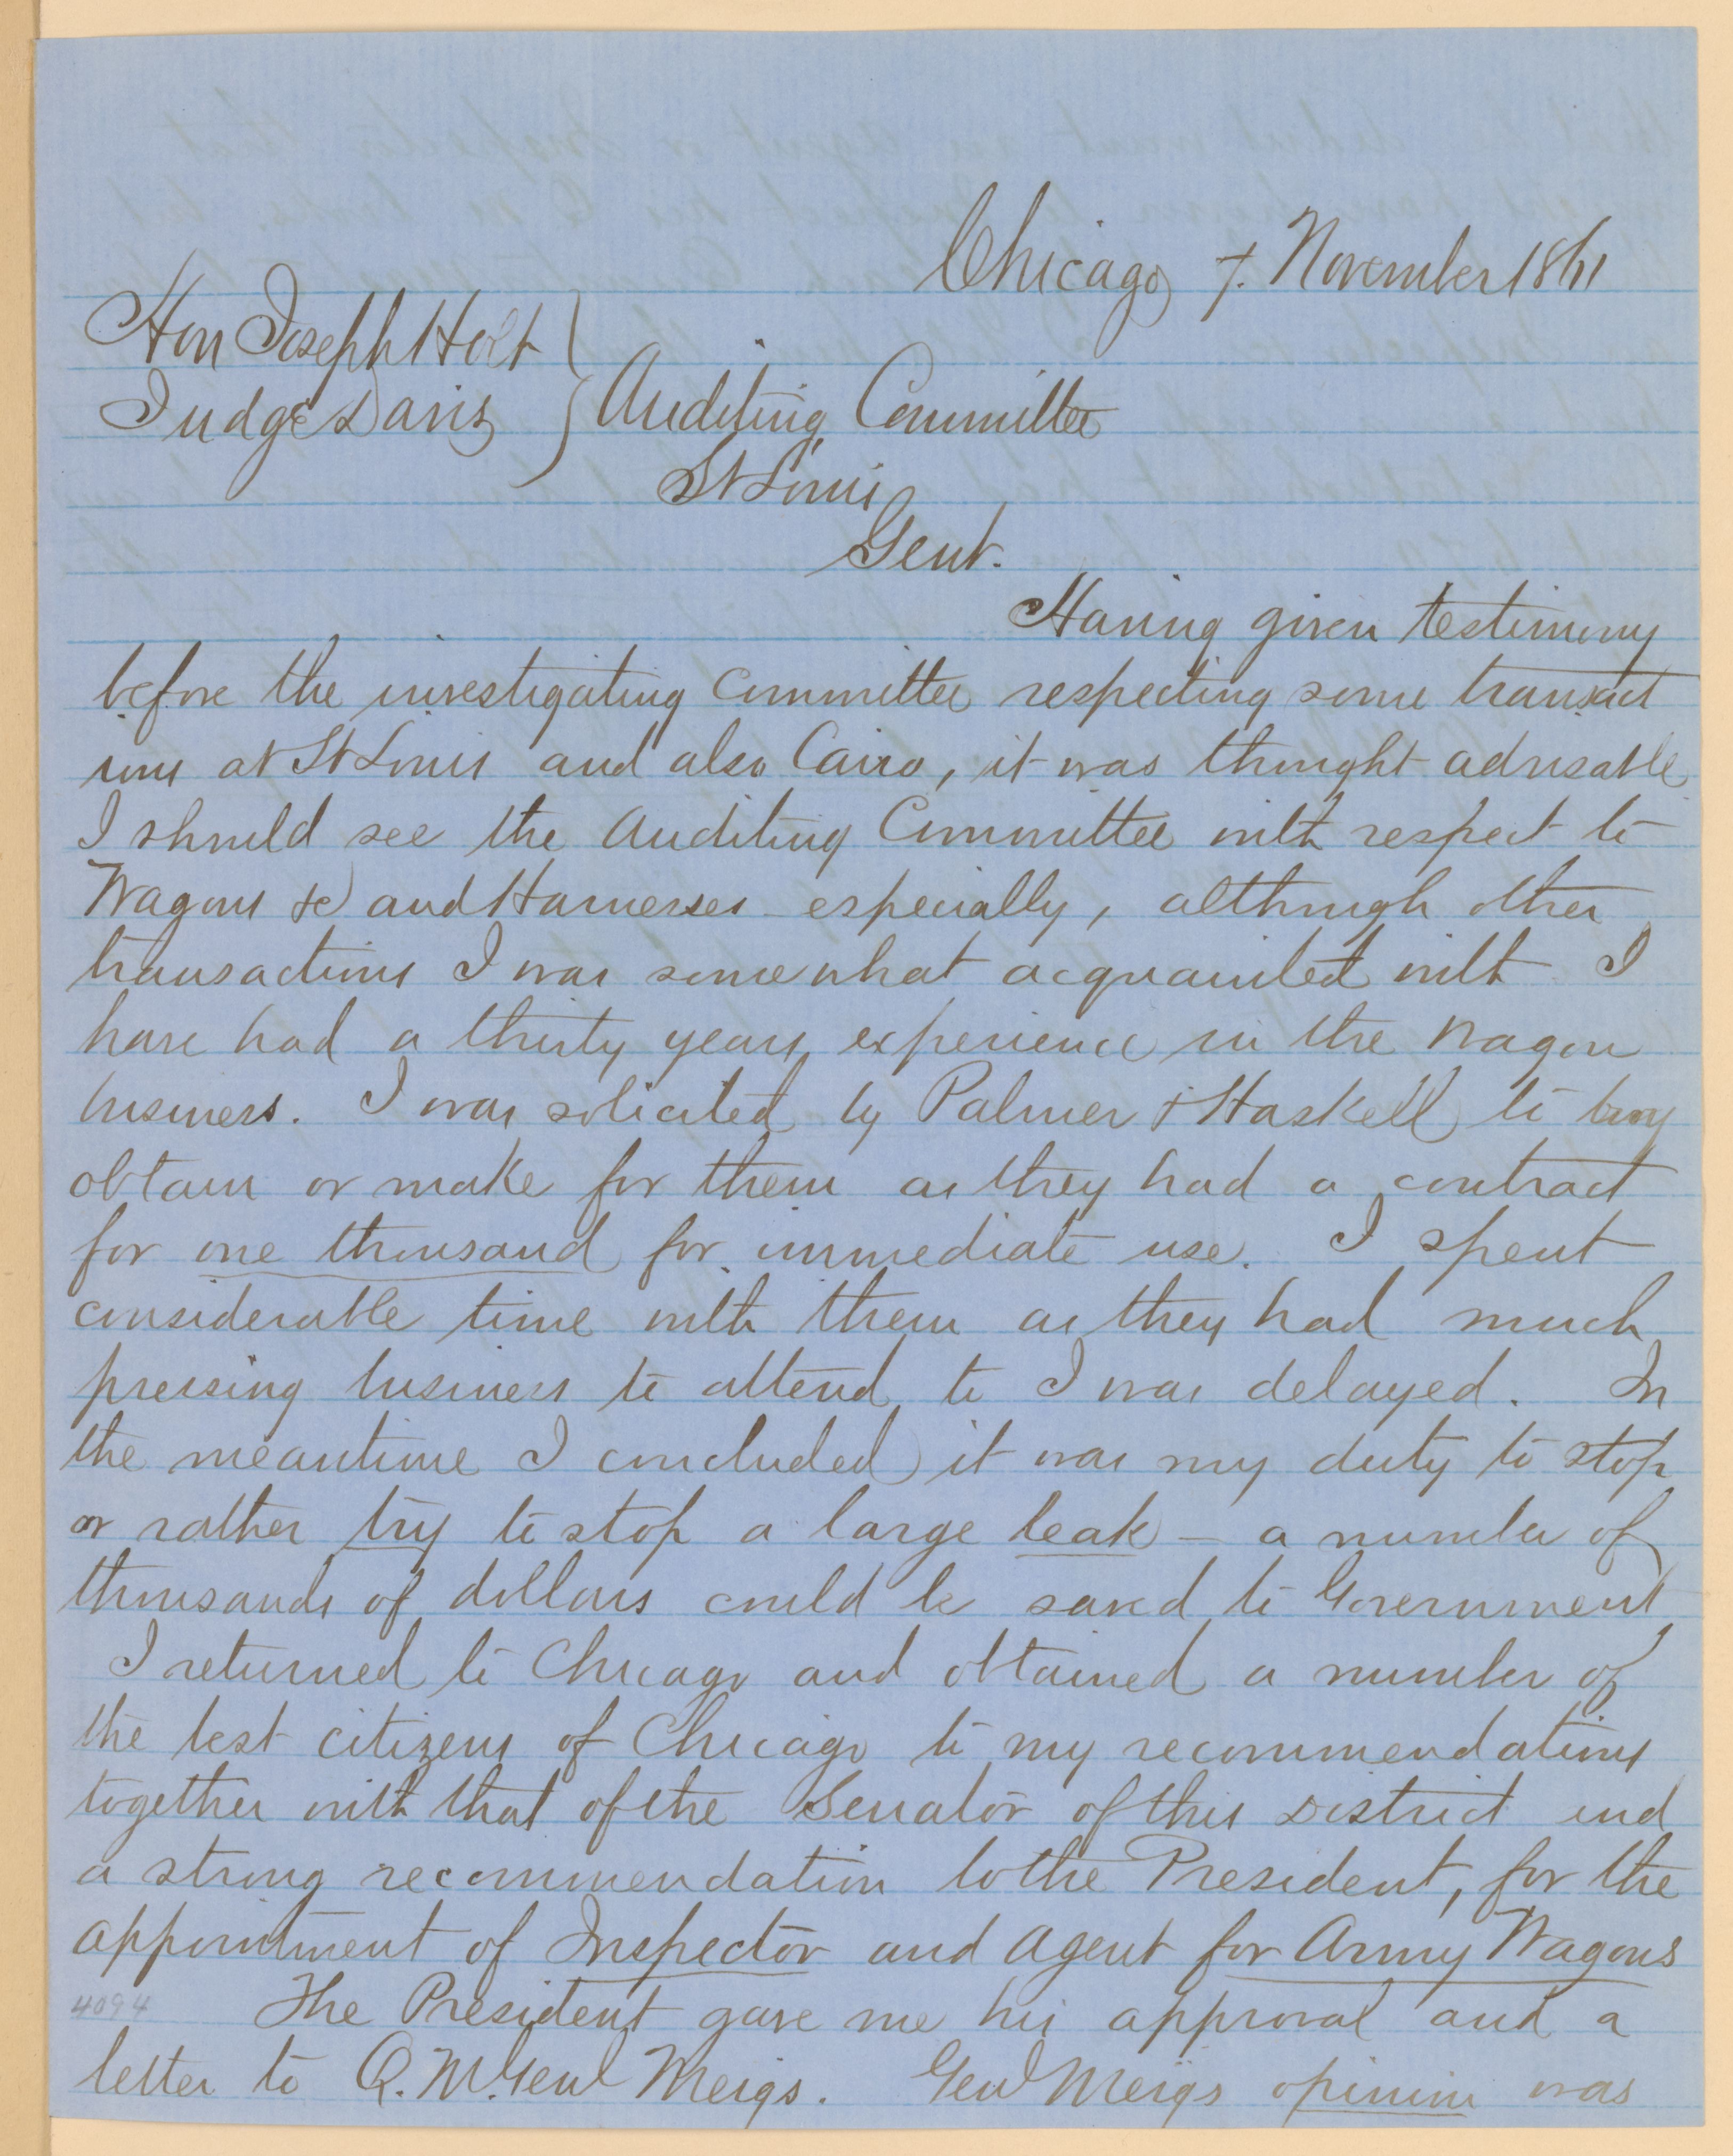 Chicago 7. November 1861
Hon Joseph Holt
Judge Davis } Auditing Committee
St Louis
Gent.
Having given testimony
before the investigating Committee respecting some transact
ions at St Louis and also Cairo, it was thought advisable
I should see the Auditing Committee with respect to
Wagons &c and Harnesses especially, although other
transactions I was somewhat acquainted with I
have had a thirty years experience in the Wagon
business. I was solicited by Palmer & Haskell to buy
obtain or make for them as they had a contract
for one thousand for immediate use. I spent
considerable time with them as they had much
pressing business to attend to I was delayed. In
the meantime I concluded it was my duty to stop
or rather try to stop a large leak – a number of
thousands of dollars could be saved to Government
I returned to Chicago and obtained a number of
the best citizens of Chicago to my recommendations
together with that of the Senator of this District and
a strong recommendation to the President, for the
appointment of Inspector and Agent for Army Wagons
4094 The President gave me his approval and a
letter to Q. M. Genl Meigs. Genl Meigs opinion was